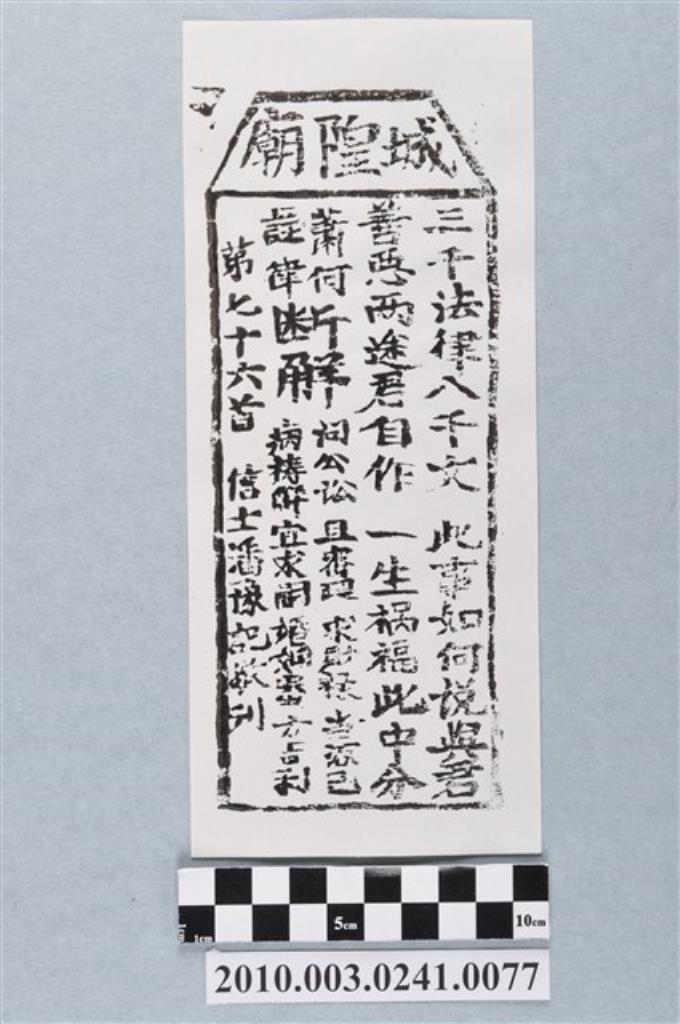 城隍廟
三千法律八千文 此事如何說與君
善惡兩途君自作 一生禍福此中分
蕭何斤解 問公訟 且審理 求財祿 當源己
註律断解 病禱解宜求嗣婚姻 方吉利
第七十六首 信士潘 記敬刊
5cm
10cm
1cm
2010.003.0241.0077